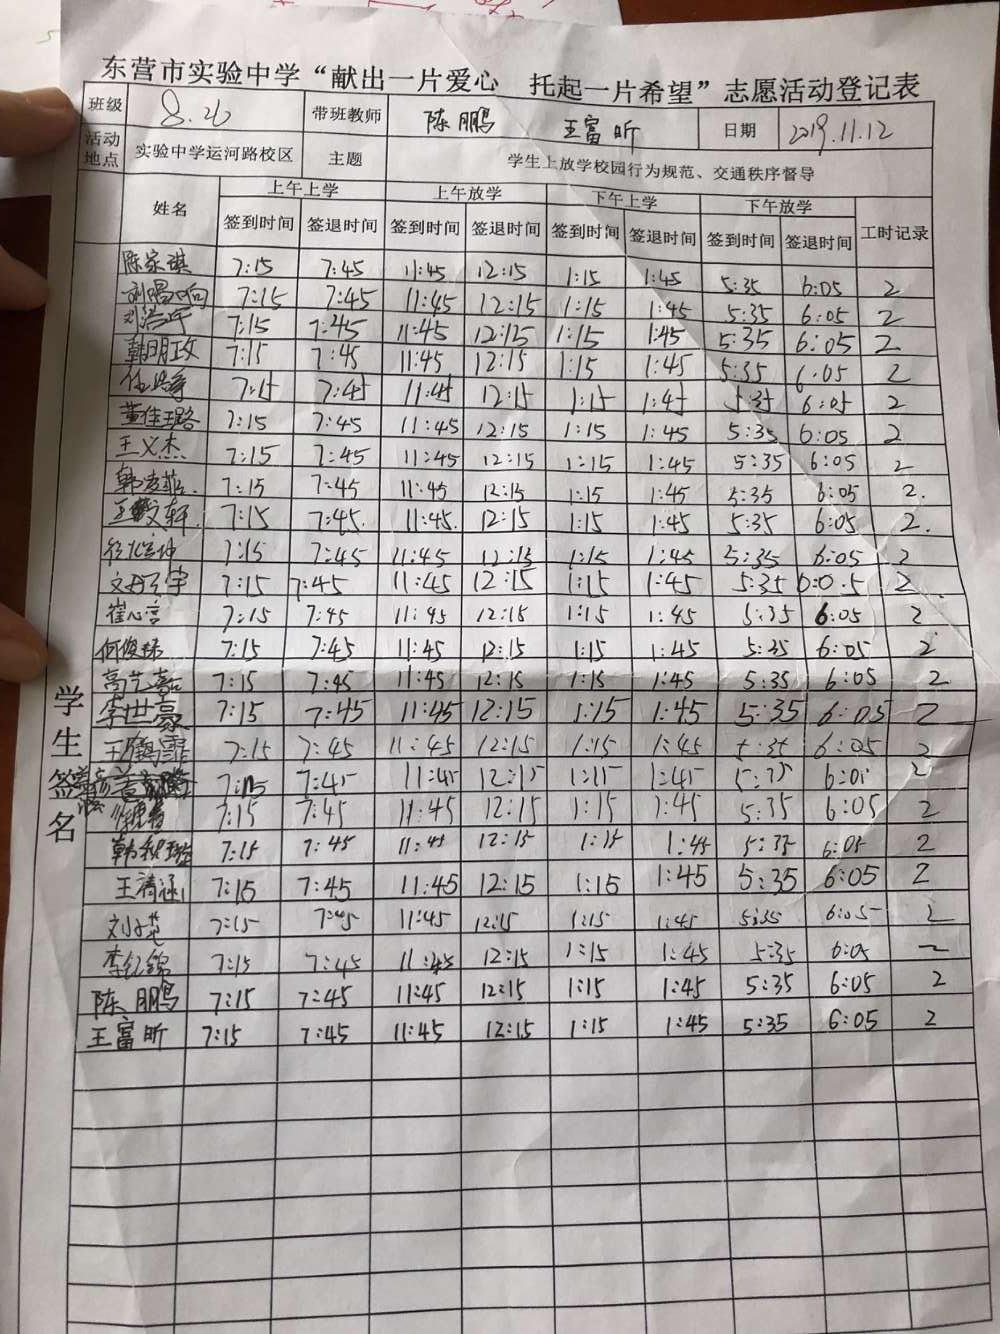 东营市实验中学“献出一片爱心 托起一片希望”志愿活动登记表
班级 8.26 带班教师 陈鹏 王富昕 日期 2019.11.12
活动地点 实验中学运河路校区 主题 学生上放学校园行为规范、交通秩序督导
姓名 上午上学 上午放学 下午上学 下午放学 工时记录
签到时间 签退时间 签到时间 签退时间 签到时间 签退时间 签到时间 签退时间
学生签名
陈家琪 7:15 7:45 11:45 12:15 1:15 1:45 5:35 6:05 2
7:15 7:45 11:45 12:15 1:15 1:45 5:35 6:05 2
7:15 7:45 11:45 12:15 1:15 1:45 5:35 6:05 2
韩明政 7:15 7:45 11:45 12:15 1:15 1:45 5:35 6:05 2
7:15 7:45 11:45 12:15 1:15 1:45 5:35 6:05 2
董佳璐 7:15 7:45 11:45 12:15 1:15 1:45 5:35 6:05 2
王义杰 7:15 7:45 11:45 12:15 1:15 1:45 5:35 6:05 2
7:15 7:45 11:45 12:15 1:15 1:45 5:35 6:05 2.
7:15 7:45. 11:45. 12:15 1:15 1:45 5:35 6:05 2.
7:15 7:45 11:45 12:15 1:15 1:45 5:35 6:05 2
7:15 7:45 11:45 12:15 1:15 1:45 5:35 6:0.5 2
崔心言 7:15 7:45 11:45 12:15 1:15 1:45 5:35 6:05 2
7:15 7:45 11:45 12:15 1:15 1:45 5:35 6:05 2
高艺嘉 7:15 7:45 11:45 12:15 1:15 1:45 5:35 6:05 2
李世豪 7:15 7:45 11:45 12:15 1:15 1:45 5:35 6:05 2
7:15 7:45 11:45 12:15 1:15 1:45 5:35 6:05 2
7:15 7:45 11:45 12:15 1:15 1:45 5:35 6:05 2
7:15 7:45 11:45 12:15 1:15 1:45 5:35 6:05 2
7:15 7:45 11:45 12:15 1:15 1:45 5:35 6:05 2
王禧涵 7:15 7:45 11:45 12:15 1:15 1:45 5:35 6:05 2
7:15 7:45 11:45 12:15 1:15 1:45 5:35 6:05 2
7:15 7:45 11:45 12:15 1:15 1:45 5:35 6:05 2
陈鹏 7:15 7:45 11:45 12:15 1:15 1:45 5:35 6:05 2
王富昕 7:15 7:45 11:45 12:15 1:15 1:45 5:35 6:05 2